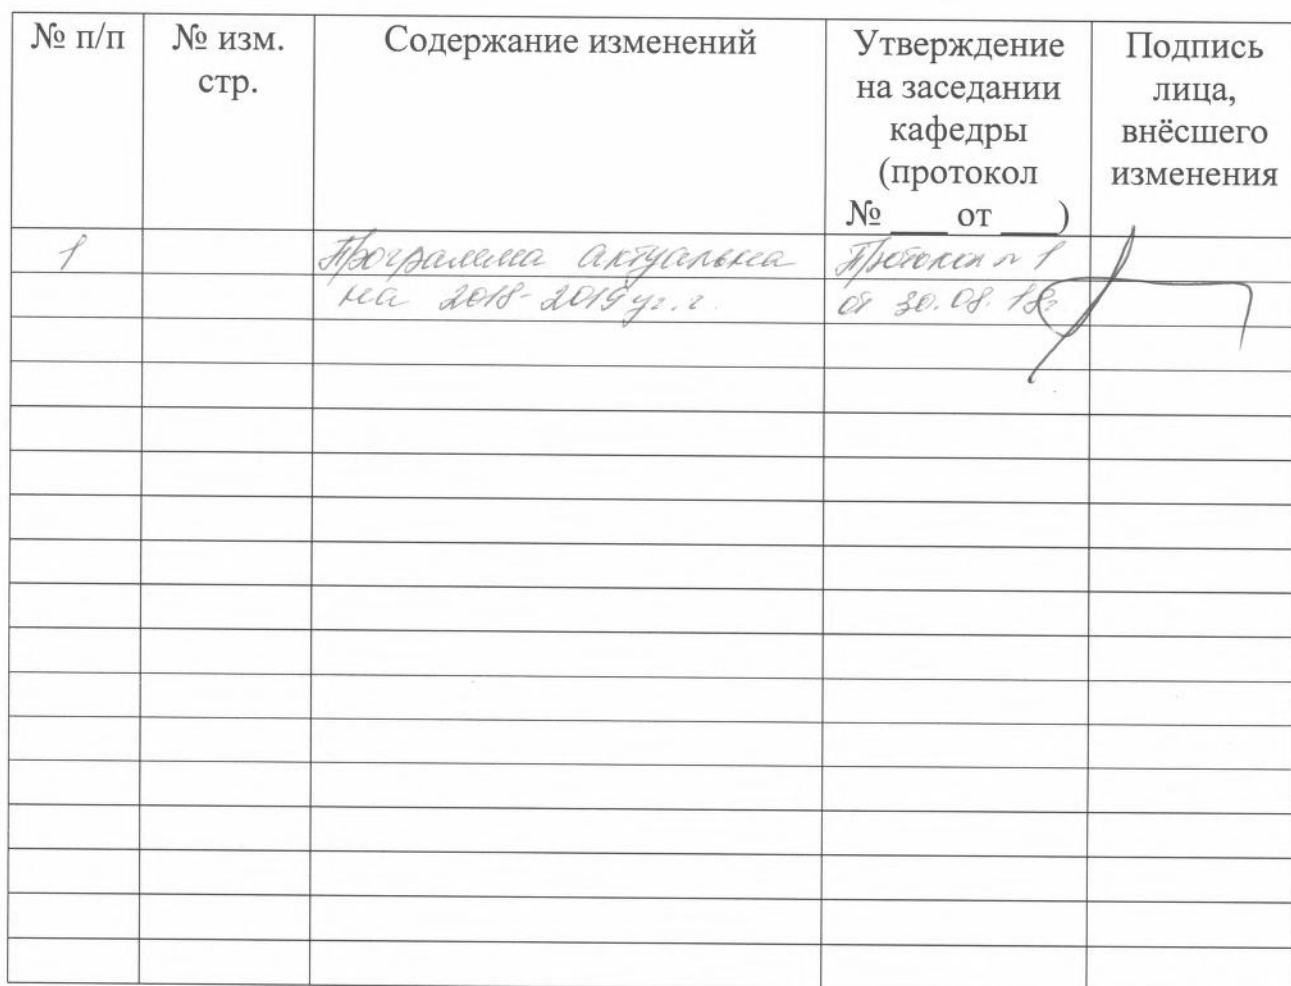 № п/п
№ изм.
стр.
Содержание изменений
Утверждение
на заседании
кафедры
(протокол
№ ____ от ____)
Подпись
лица,
внёсшего
изменения
1
Программа актуальна
на 2018-2019 уг.г.
Протокол № 1
от 30.08.18г